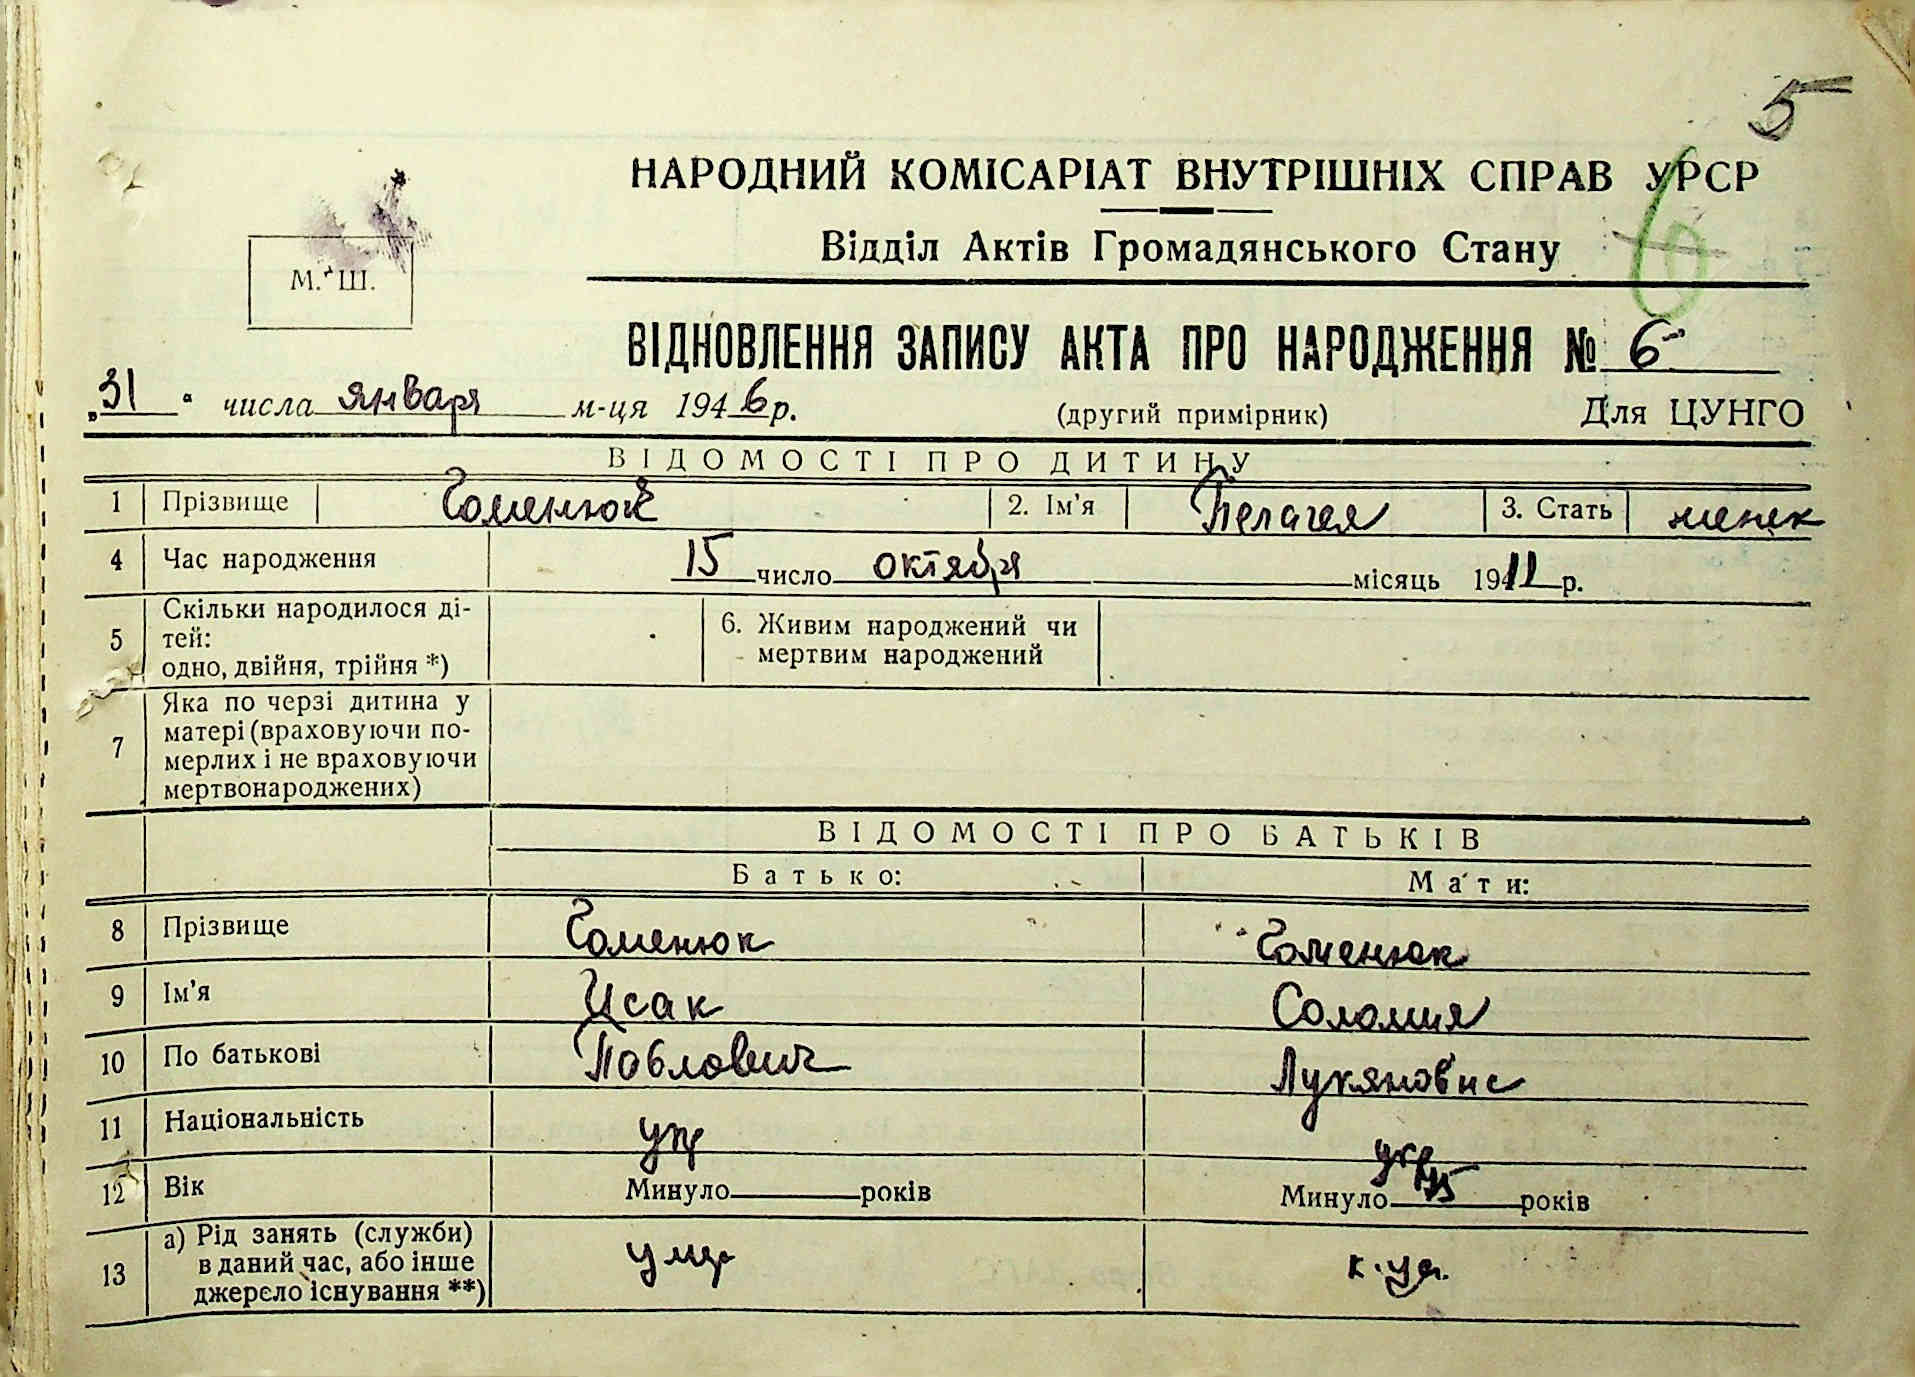 5
НАРОДНИЙ КОМІСАРІАТ ВНУТРІШНІХ СПРАВ УРСР
6
Відділ Актів Громадянського Стану
М. Ш.
ВІДНОВЛЕННЯ ЗАПИСУ АКТА ПРО НАРОДЖЕННЯ № 6
„31“ числа января м-ця 1946 р. (другий примірник) Для ЦУНГО
ВІДОМОСТІ ПРО ДИТИНУ
1 Прізвище Гоменюк 2. Ім'я Пелагея 3. Стать женск
4 Час народження 15 число октября місяць 1911 р.
5 Скільки народилося ді-
тей:
одно, двійня, трійня *)
6. Живим народжений чи
мертвим народжений
7 Яка по черзі дитина у
матері (враховуючи по-
мерлих і не враховуючи
мертвонароджених)
ВІДОМОСТІ ПРО БАТЬКІВ
Батько: Мати:
8 Прізвище Гоменюк Гоменюк
9 Ім'я Исак Соломия
10 По батькові Павлович Лукяновне
11 Національність укр укр
12 Вік Минуло років Минуло 75 років
13 а) Рід занять (служби)
в даний час, або інше
джерело існування **)
умр